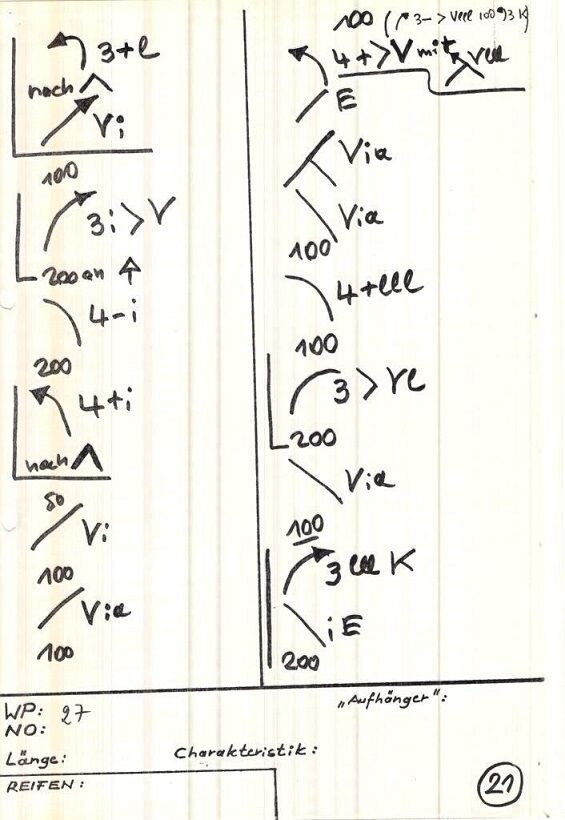 3+l
nach
Vi
100
3i > V
200 an
4-i
200
4+i
nach
50
Vi
100
Via
100
100 ( 3 -> 100 93 K)
4+>V mit
E
Via
Via
100
4+lll
100
3 > Vl
200
Via
100
3 lll K
iE
200
WP: 27
NO:
Länge:
Charakteristik:
REIFEN:
„Aufhänger":
21